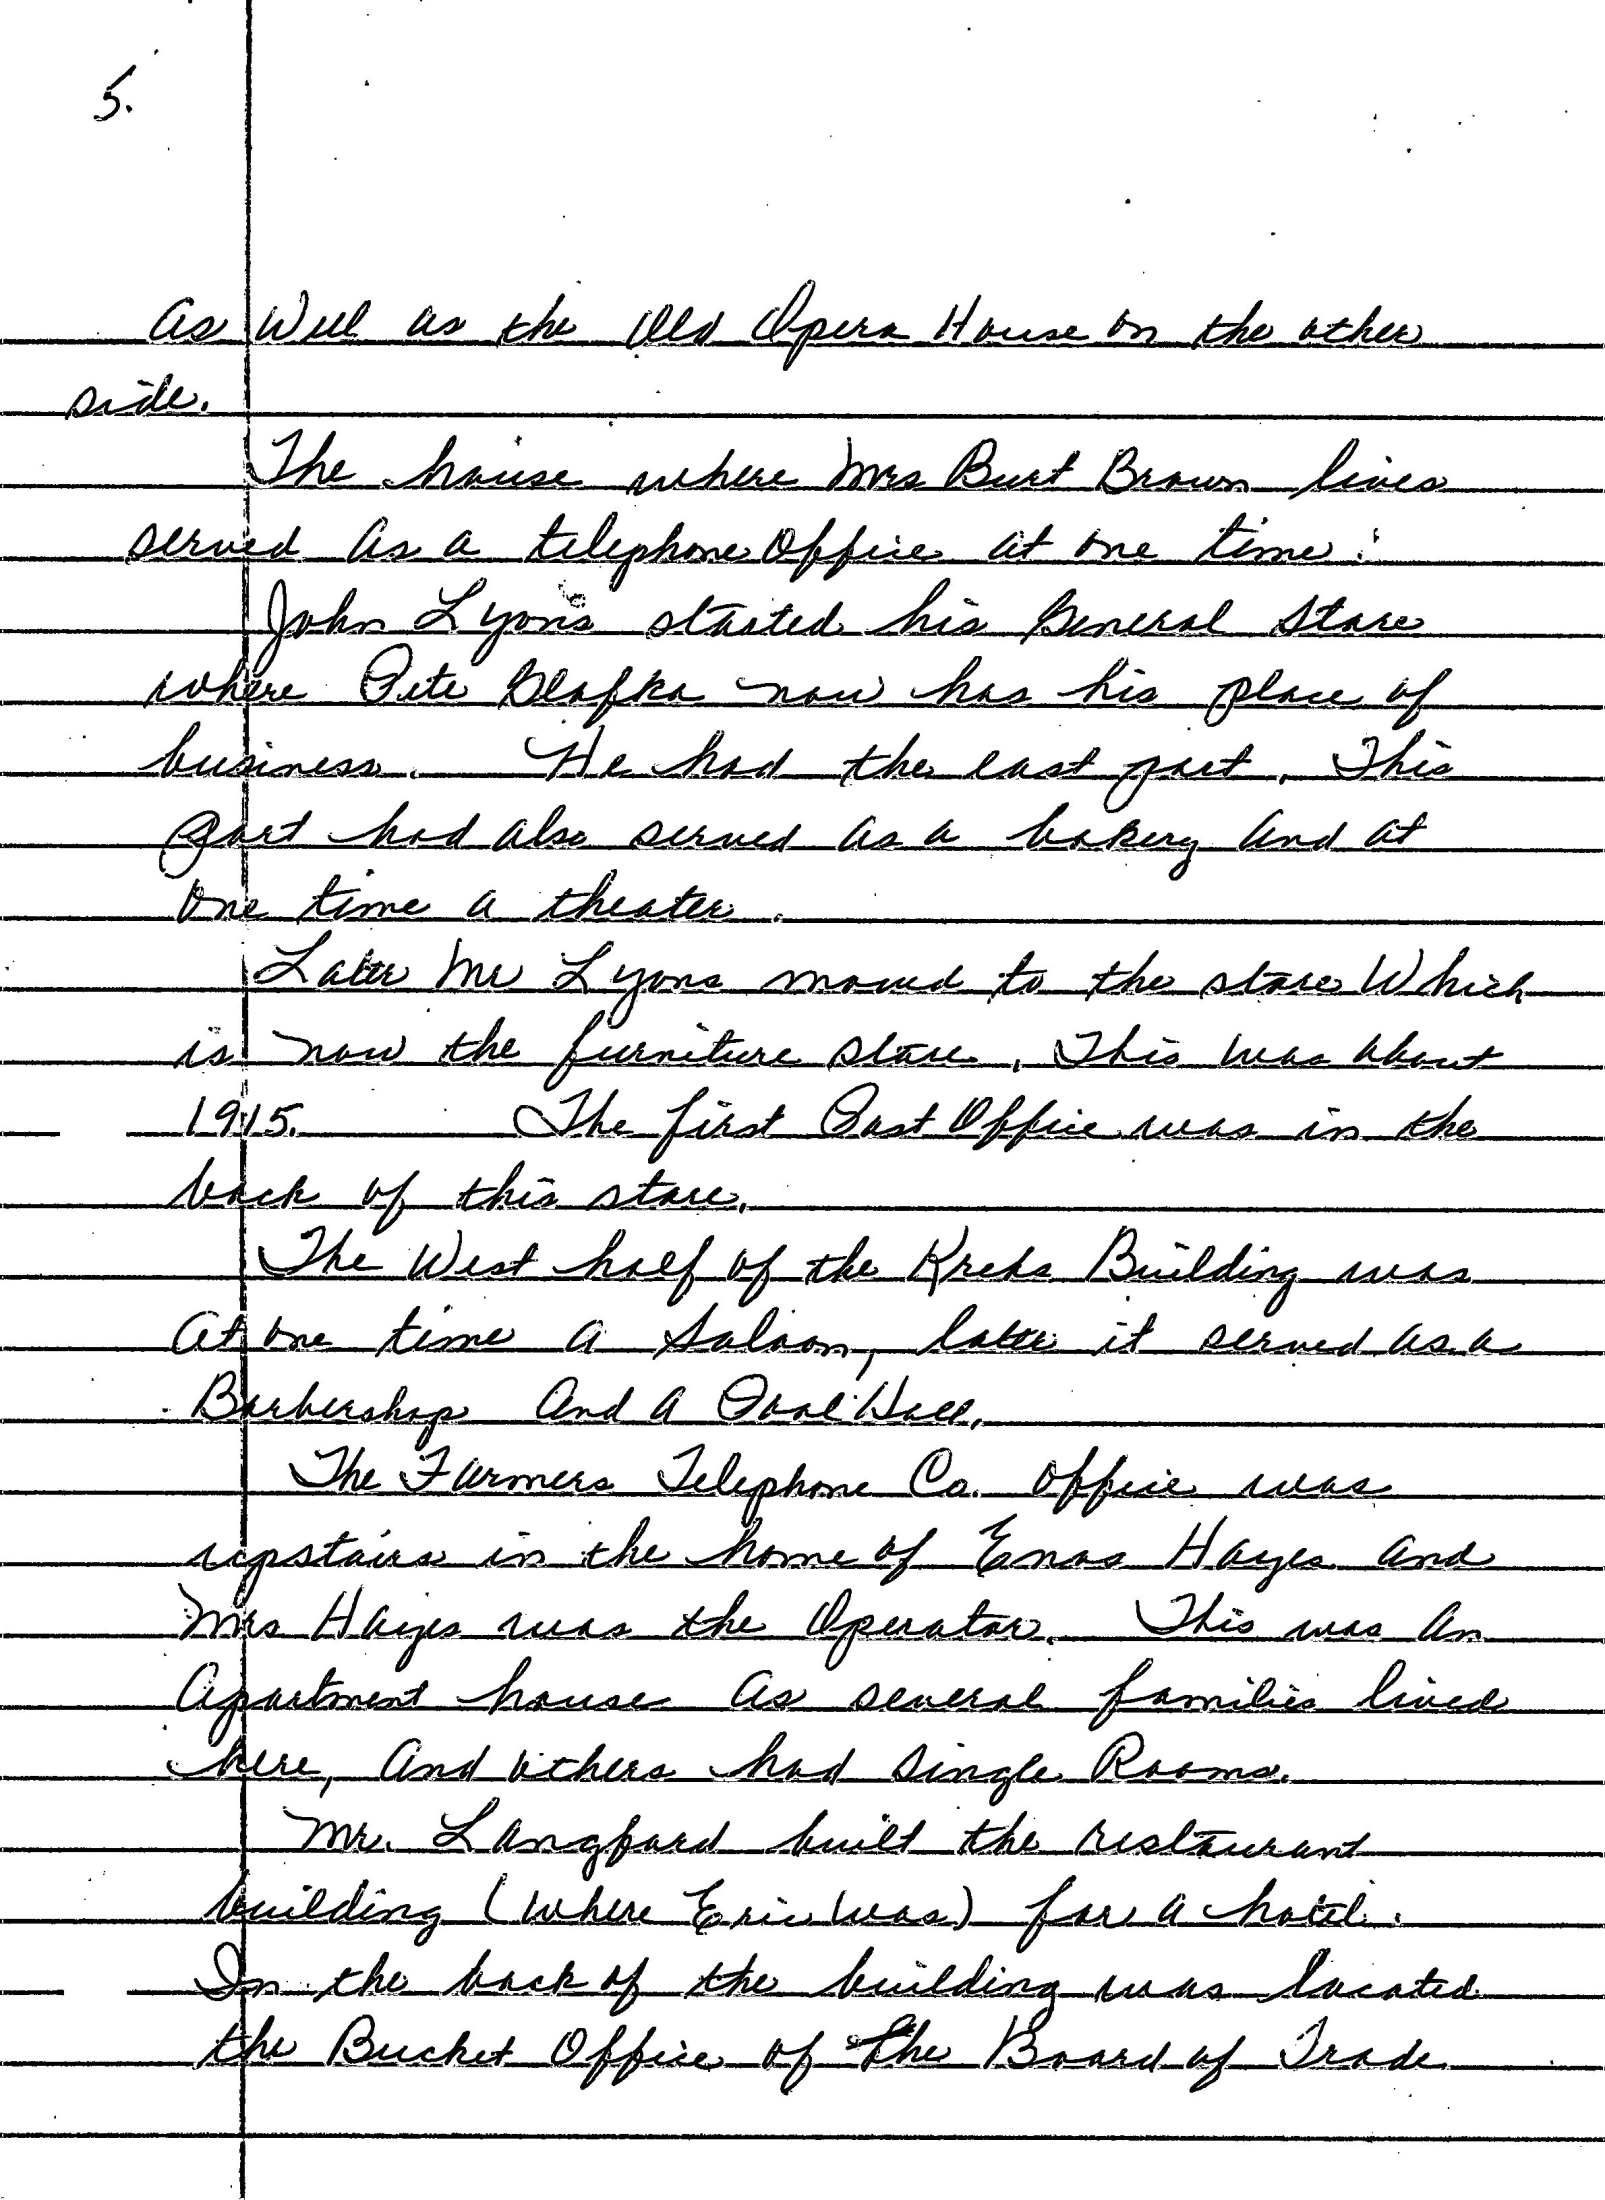 5.
As Well as the Old Opera House on the other
side.
The house where Mrs Burt Brown lives
served as a telephone Office at one time.
John Lyons started his General Store
where Pete Glafka now has his place of
business. He had the east part. This
part had also served as a bakery and at
one time a theater.
Later Mr Lyons moved to the store Which
is now the furniture store. This was about
1915. The first Post Office was in the
back of this store.
The West half of the Krebs Building was
at one time a Saloon, later it served as a
Barbershop and a Pool Hall.
The Farmers Telephone Co. Office was
upstairs in the home of Enos Hayes and
Mrs Hayes was the Operator. This was an
Apartment house as several families lived
here, and others had single Rooms.
Mr. Langford built the restaurant
building (where Eric was) for a hotel.
In the back of the building was located
the Bucket Office of the Board of Trade